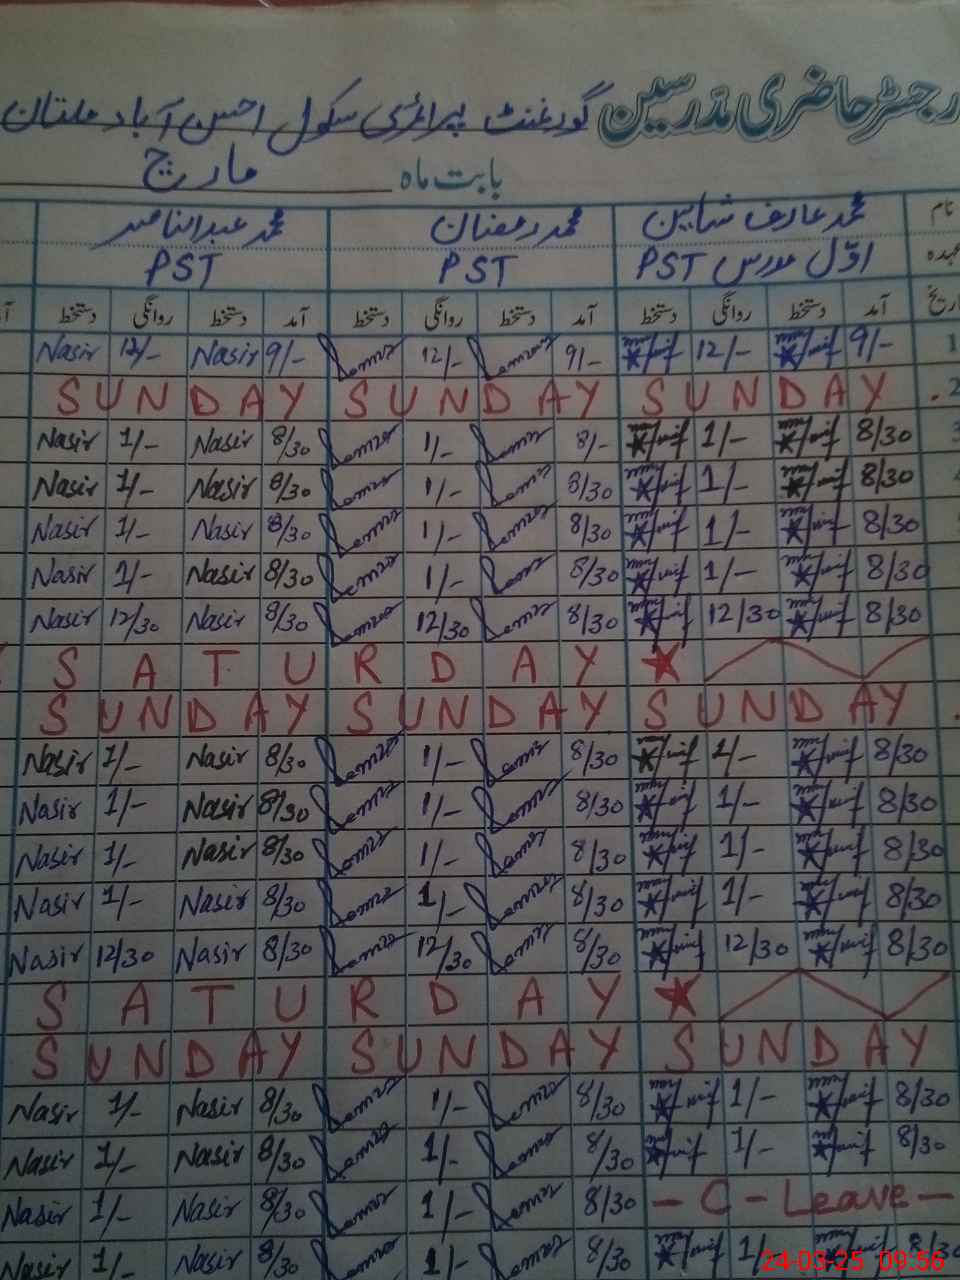 رجسٹر حاضری مدرسین گورنمنٹ پرائمری سکول احسن آباد ملتان
بابت ماہ مارچ
نام محمد عارف شاہین محمد رمضان محمد عبدالناصر
عہدہ اوّل مدرس PST PST PST
تاریخ آمد دستخط روانگی دستخط آمد دستخط روانگی دستخط آمد دستخط روانگی دستخط
Nasir 12/- Nasir 9/- 12/- 9/- 12/- 9/- 1
SUNDAY SUNDAY SUNDAY 2
Nasir 1/- Nasir 8/30 1/- 8/- 1/- 8/30 3
Nasir 1/- Nasir 8/30 1/- 8/30 1/- 8/30
Nasir 1/- Nasir 8/30 1/- 8/30 1/- 8/30
Nasir 1/- Nasir 8/30 1/- 8/30 1/- 8/30
Nasir 12/30 Nasir 8/30 12/30 8/30 12/30 8/30
SATURDAY
SUNDAY SUNDAY SUNDAY
Nasir 1/- Nasir 8/30 1/- 8/30 1/- 8/30
Nasir 1/- Nasir 8/30 1/- 8/30 1/- 8/30
Nasir 1/- Nasir 8/30 1/- 8/30 1/- 8/30
Nasir 1/- Nasir 8/30 1/- 8/30 1/- 8/30
Nasir 12/30 Nasir 8/30 12/30 8/30 12/30 8/30
SATURDAY
SUNDAY SUNDAY SUNDAY
Nasir 1/- Nasir 8/30 1/- 8/30 1/- 8/30
Nasir 1/- Nasir 8/30 1/- 8/30 1/- 8/30
Nasir 1/- Nasir 8/30 1/- 8/30 - C - Leave -
Nasir 1/- Nasir 8/30 1/- 8/30 1/- 8/30
24-03-25 09:56